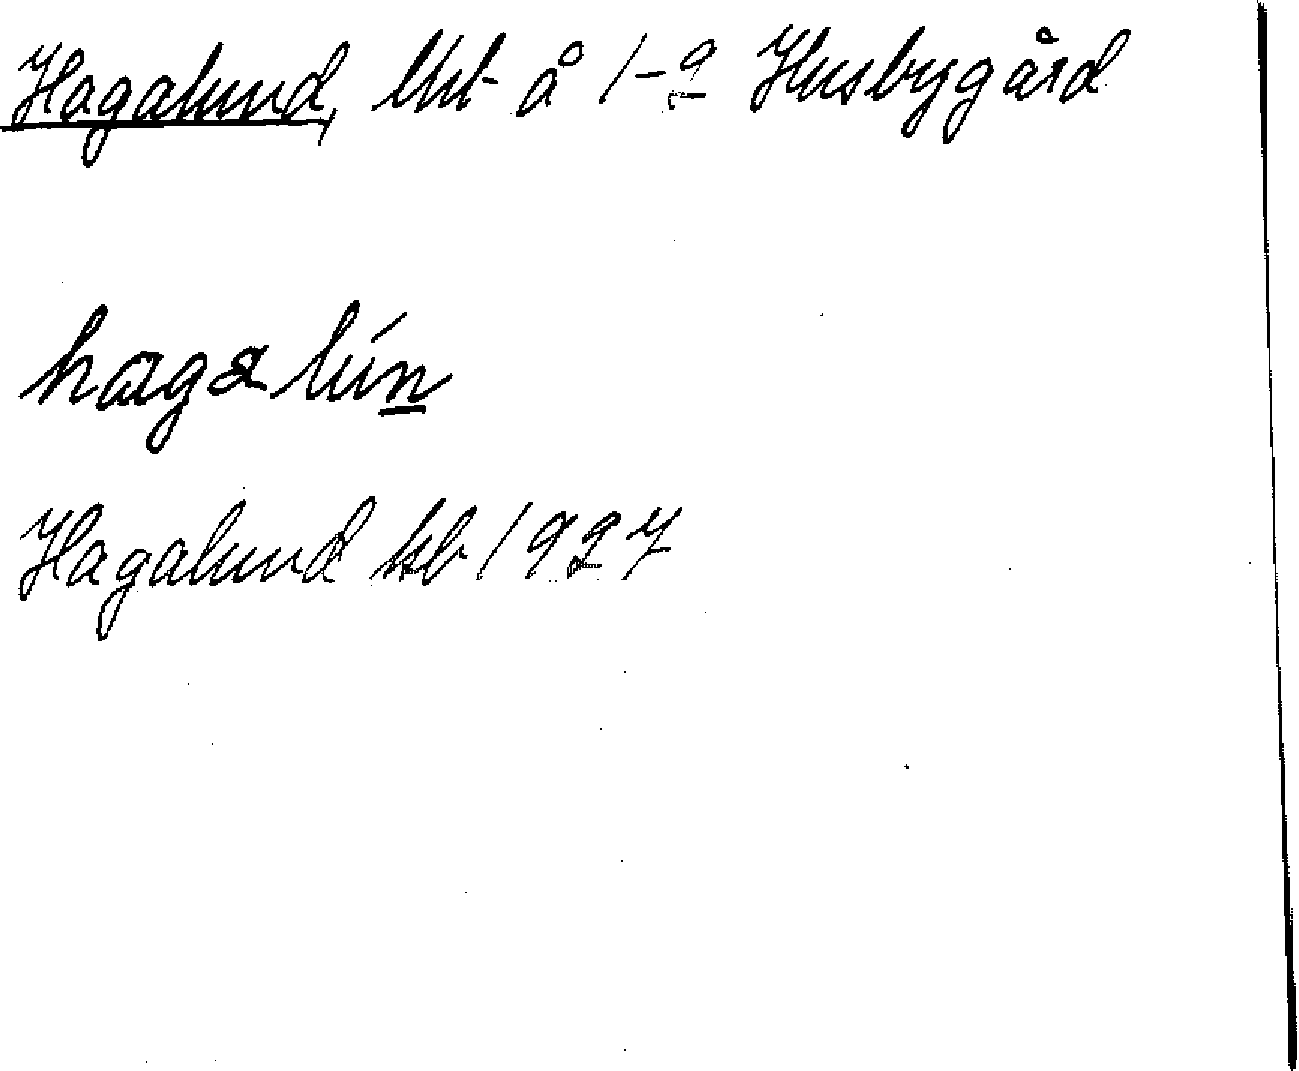 Hagalund, lht å 1-2 Husbygård
hagalún
Hagalund kb 1927